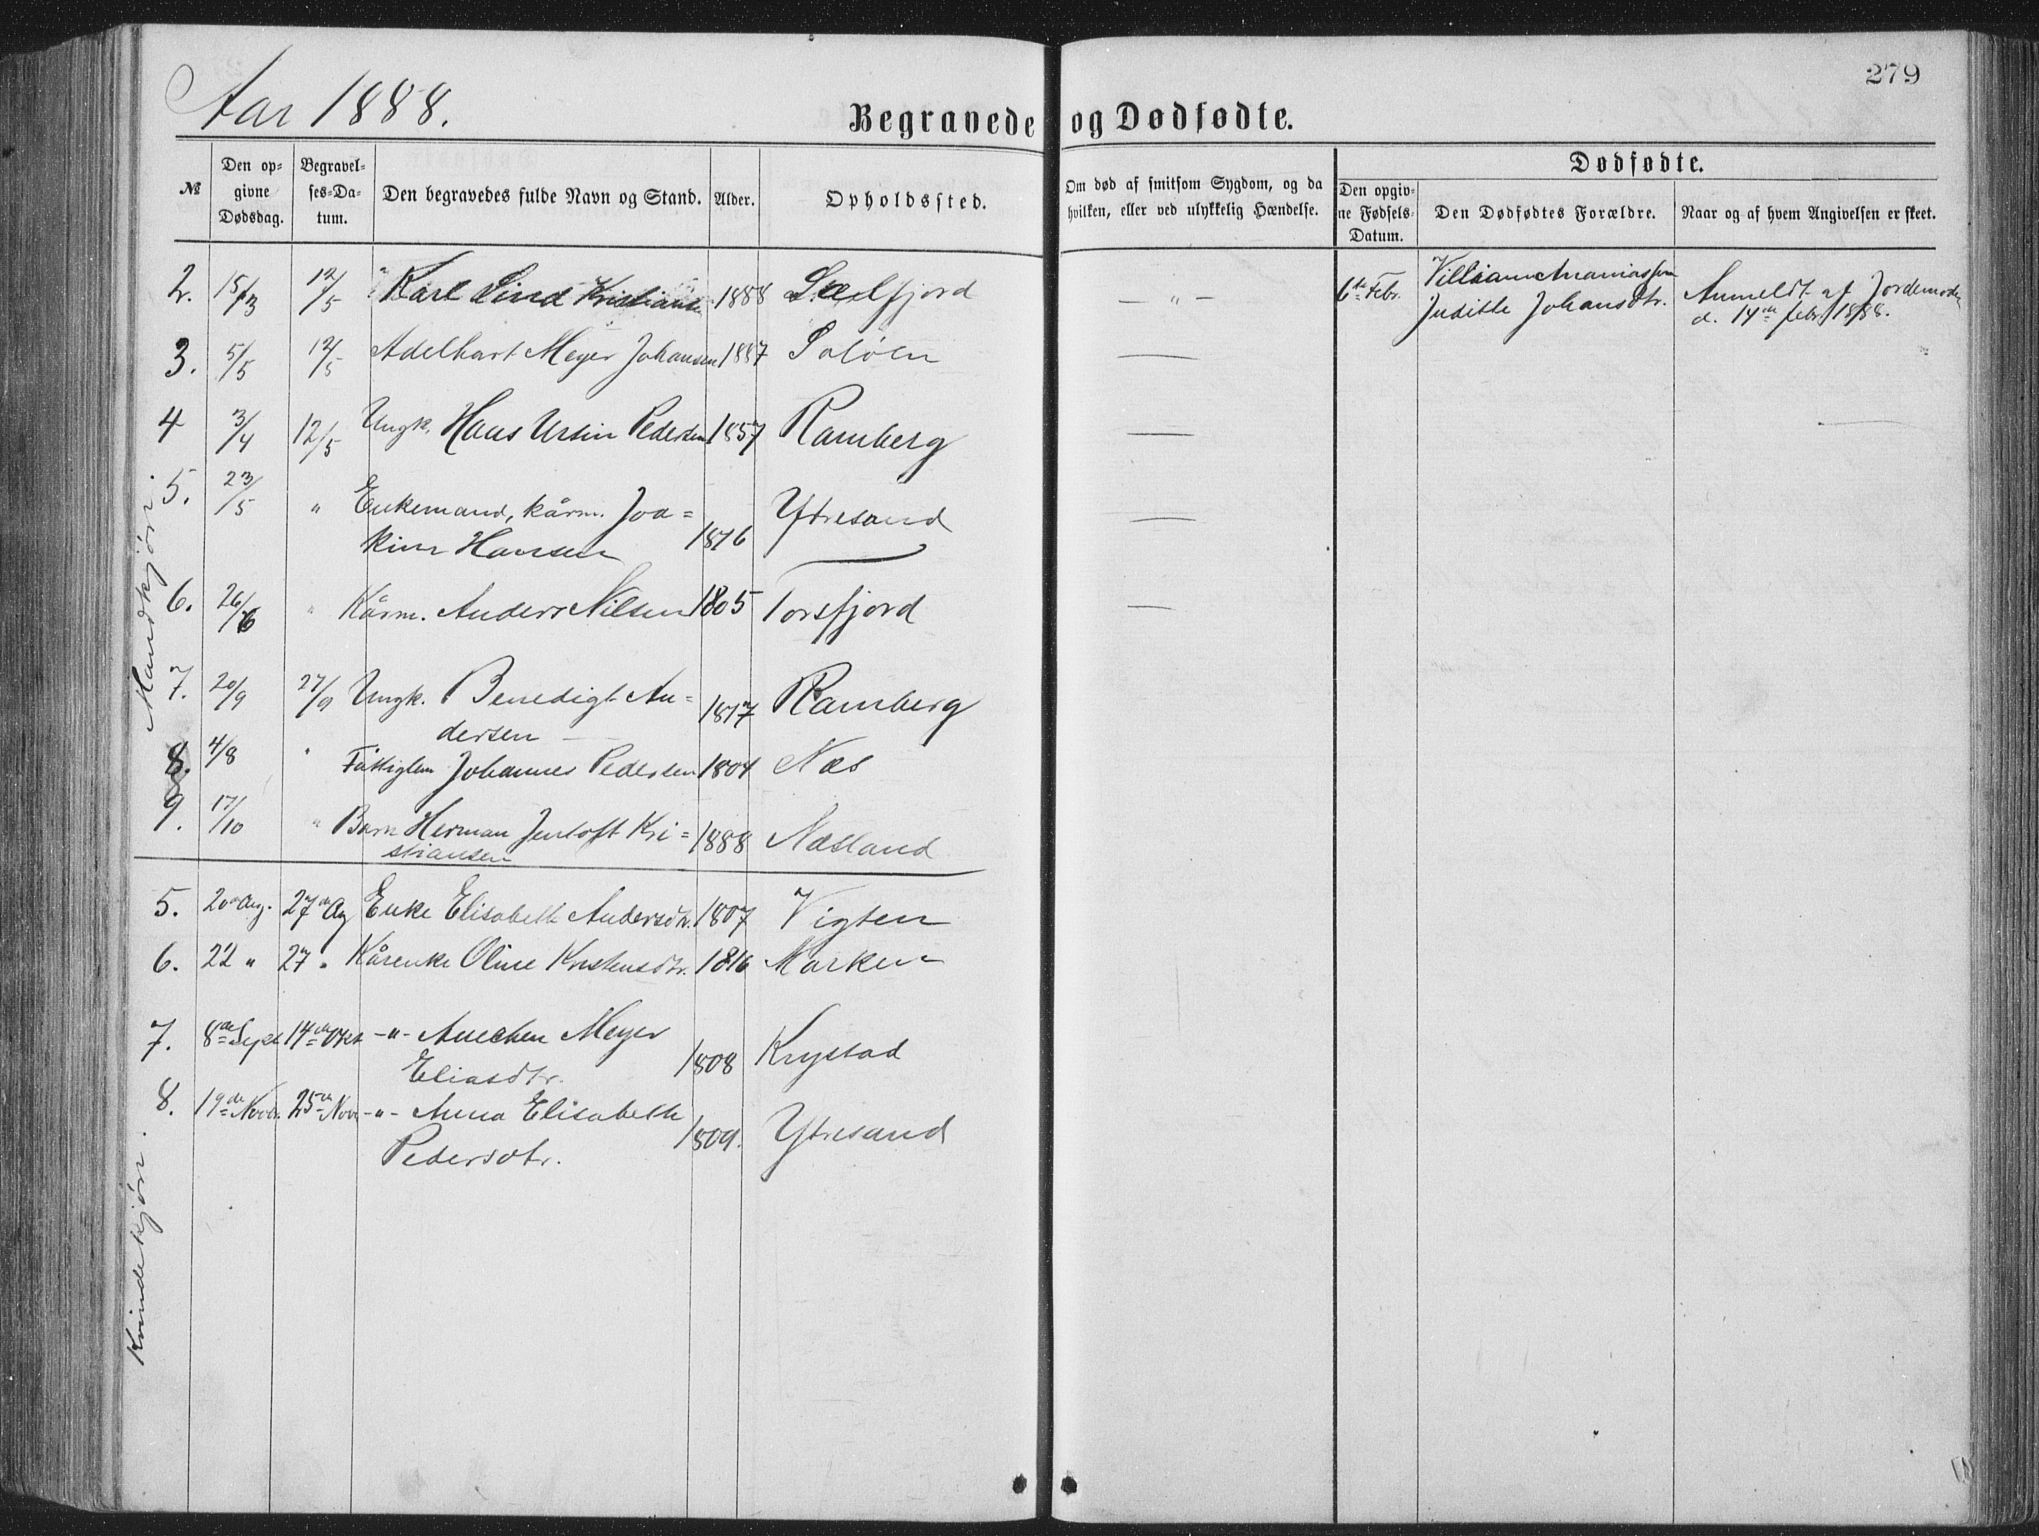 279
Aar 1888.
Begravede og Dødfødte.
№
Den op=
givne
Dødsdag.
Begravel=
ses=Da=
tum.
Den begravedes fulde Navn og Stand.
Alder.
Opholdssted.
Om død af smitsom Sygdom, og da
hvilken, eller ved ulykkelig Hændelse.
Dødfødte.
Den opgiv=
ne Fødsels=
Datum.
Den Dødfødtes Forældre.
Naar og af hvem Angivelsen er skeet.
Mandkjøn.
2. 15/3 12/5 " Karl Lind Kristiansen 1888 Selfjord — " — 6te Febr. Villiam Ananiassen
Judithe Johansdtr. Anmeldt af Jordemoder
d. 14de febr. 1888.
3. 5/5 12/5 Adelhart Meyer Johansen 1887 Soløen —
4 3/4 12/5 Ungk. Hans Ursin Pedersen 1857 Ramberg —
5. 23/5 " Enkemand, kårm. Joa=
kim Hansen 1816 Ytresand —
6. 26/6 " Kårm. Anders Nilsen 1805 Torsfjord —
7. 20/9 27/9 Ungk. Benedigt An=
dersen — 1817 Ramberg
8. 4/8 " Fattiglem Johannes Pedersen 1804 Næs
9. 17/10 " Barn Herman Jentoft Kri=
stiansen 1888 Næsland
Kvindekjøn.
5. 20de Aug. 27de Aug Enke Elisabeth Andersdtr. 1807 Vigten
6. 22 " 27 " Kårenke Oline Kristensdtr. 1816 Marken
7. 8de Sept 14de Okt -"- Anechen Meyer
Eliasdtr. 1808 Krystad
8. 19de Novbr. 25de Nov. -"- Anna Elisabeth
Pedersdtr. 1809. Ytresand